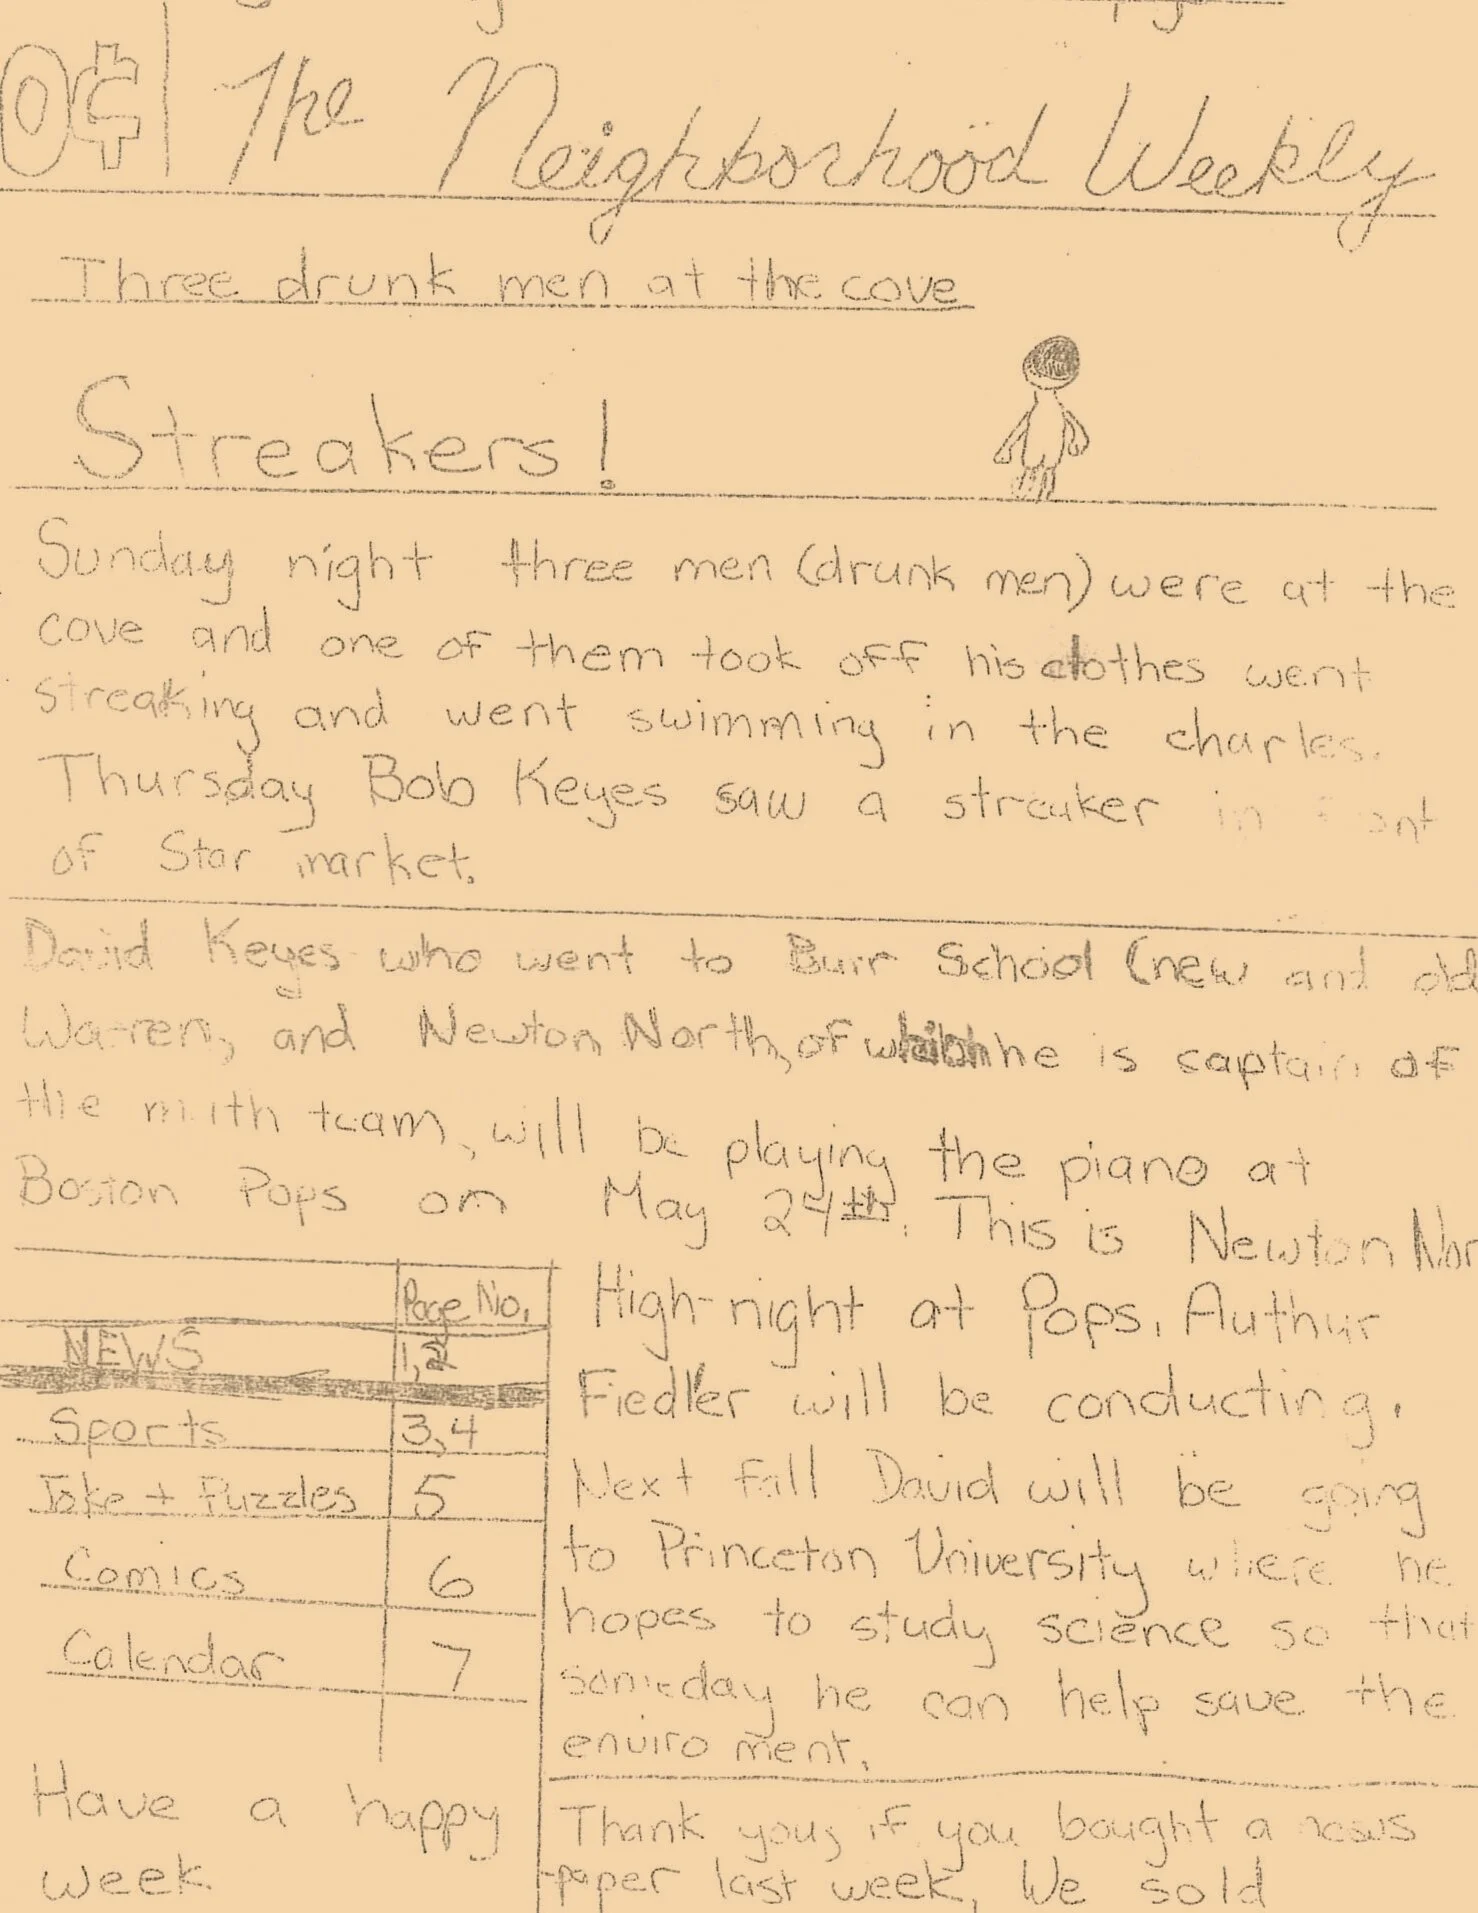 0¢ The Neighborhood Weekly
Three drunk men at the cove
Streakers!
Sunday night three men (drunk men) were at the
cove and one of them took off his clothes went
streaking and went swimming in the charles.
Thursday Bob Keyes saw a streaker in front
of Star market.
David Keyes who went to Burr School (new and old
Warren, and Newton North, of which he is captain of
the math team, will be playing the piano at
Boston Pops on May 24th. This is Newton Nor
High-night at Pops. Authur
Fiedler will be conducting.
Next fall David will be going
to Princeton University where he
hopes to study science so that
someday he can help save the
enviro ment.
Page No.
NEWS 1,2
Sports 3,4
Joke + Puzzles 5
Comics 6
Calendar 7
Have a happy
week.
Thank you, if you bought a news
paper last week. We sold